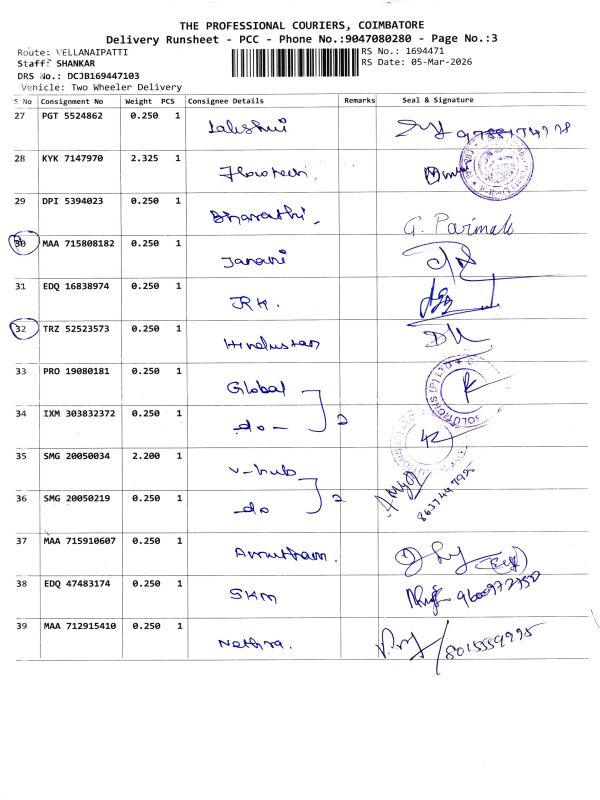 THE PROFESSIONAL COURIERS, COIMBATORE
Delivery Runsheet - PCC - Phone No.:9047080280 - Page No.:3
Route: VELLANAIPATTI RS No.: 1694471
Staff: SHANKAR RS Date: 05-Mar-2026
DRS No.: DCJB169447103
Vehicle: Two Wheeler Delivery
S No Consignment No Weight PCS Consignee Details Remarks Seal & Signature
27 PGT 5524862 0.250 1 Lakshmi
28 KYK 7147970 2.325 1 Flowtech.
29 DPI 5394023 0.250 1 Bharathi. G. Parimala
30 MAA 715808182 0.250 1 Janani
31 EDQ 16838974 0.250 1 JRK.
32 TRZ 52523573 0.250 1 Hindustan
33 PRO 19080181 0.250 1 Global
34 IXM 303832372 0.250 1 -do- 2
35 SMG 20050034 2.200 1 V-hub
36 SMG 20050219 0.250 1 -do 2 8637449795
37 MAA 715910607 0.250 1 Amutham.
38 EDQ 47483174 0.250 1 SKM
39 MAA 712915410 0.250 1 Nethra. 8015559995